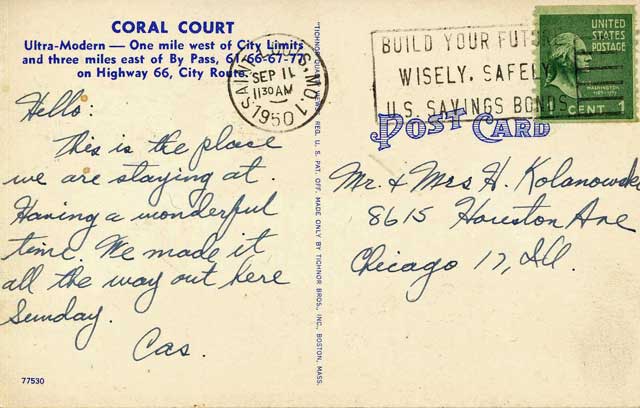 CORAL COURT
Ultra-Modern — One mile west of City Limits
and three miles east of By Pass, 61-66-67-77
on Highway 66, City Route
Hello:
This is the place
we are staying at.
Having a wonderful
time. We made it
all the way out here
Sunday.
Cas.
77530
"TICHNOR QUALITY VIEWS," REG. U. S. PAT. OFF. MADE ONLY BY TICHNOR BROS., INC., BOSTON, MASS.
SAINT LOUIS, MO. 1
SEP 11
1130 AM
1950
BUILD YOUR FUTURE
WISELY, SAFELY
U.S. SAVINGS BONDS
UNITED
STATES
POSTAGE
WASHINGTON
CENT 1
POST CARD
Mr. & Mrs H. Kolanowsk
8615 Houston Ave
Chicago 17, Ill.